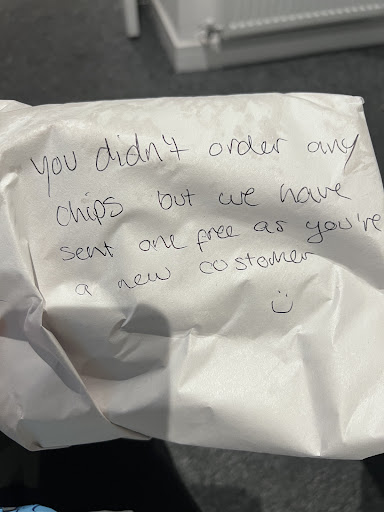 you didn't order any
chips but we have
sent one free as you're
a new customer
:)